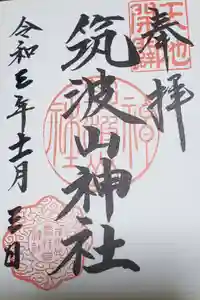 奉拝
天地開闢
筑波山神社
令和三年十一月三日